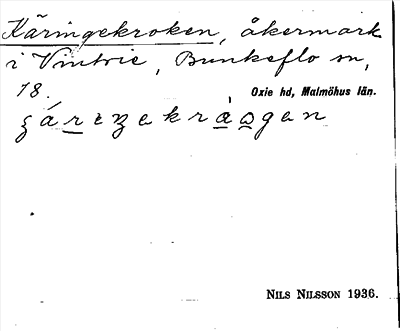 Käringekroken, åkermark
i Vintrie, Bunkeflo sn,
18. Oxie hd, Malmöhus län.
NILS NILSSON 1936.